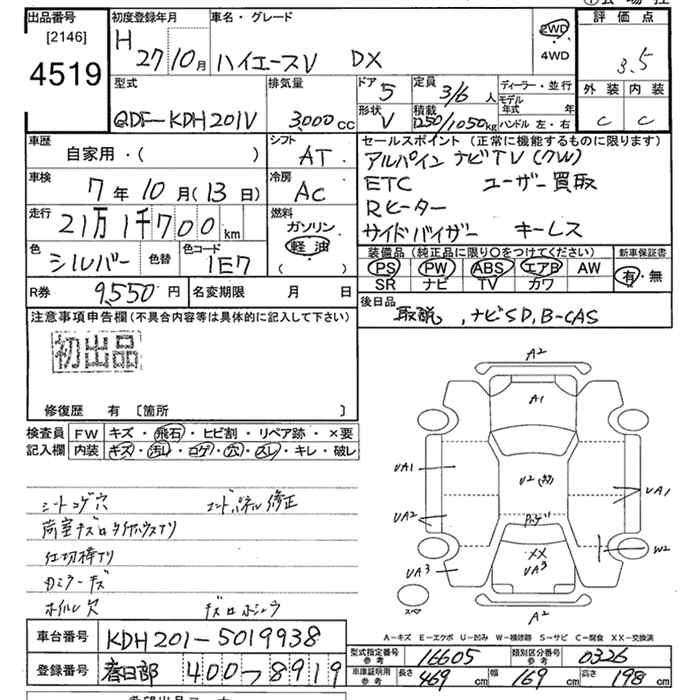 出品番号
[2146]
4519
初度登録年月
H 27 10月
車名・グレード
ハイエースV DX
2WD
4WD
評価点
3.5
外装 内装
C C
型式
QDF-KDH201V
排気量
3,000cc
ドア 5
形状 V
定員 3/6人
積載 1250/1050kg
ディーラー・並行
モデル年式 年
ハンドル 左・右
車歴
自家用・( )
シフト
AT
車検
7年10月(13日)
冷房
AC
走行
21万1千700km
燃料
ガソリン
軽油
( )
色
シルバー
色替
色コード
1E7
セールスポイント(正常に機能するものに限ります)
アルパインナビTV(フW)
ETC ユーザー買取
Rヒーター
サイドバイザー キーレス
装備品(純正品に限り〇をつけてください)
新車保証書
PS PW ABS エアB AW
SR ナビ TV カワ
有・無
R券 9,550円
名変期限 月 日
後日品
取説,ナビSD,B-CAS
注意事項申告欄(不具合内容等は具体的に記入して下さい)
初出品
修復歴 有〔箇所 〕
検査員記入欄
FW キズ・飛石・ヒビ割・リペア跡・×要
内装 キズ・汚れ・コゲ・穴・スレ・キレ・破レ
シートコゲ穴 エンドパネル修正
荷室キズロタイヤハウスサリ
仕切棒サリ
Dミラーキズ
ホイル欠 キズロホシュウ
A2
A1
UA1
UA2
U2
UA1
W2
XX
UA3
UA3
スペア
A2
A-キズ E-エクボ U-凹み W-補修跡 S-サビ C-腐食 XX-交換済
車台番号 KDH201-5019938
登録番号 春日部 400 つ 8919
型式指定番号参考 16605
類別区分番号参考 0326
車庫証明用参考 長さ 469cm 幅 169cm 高さ 198cm